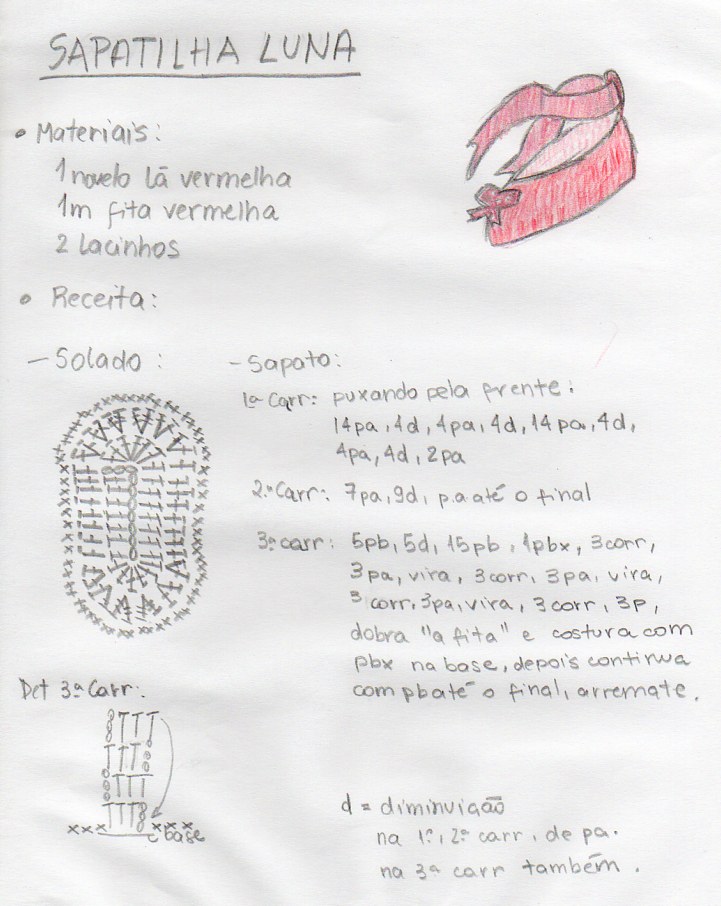 SAPATILHA LUNA
• Materiais:
1 novelo lã vermelha
1m fita vermelha
2 lacinhos
• Receita:
- Solado:
- Sapato:
1ª Carr: puxando pela frente:
14pa, 4d, 4pa, 4d, 14pa, 4d,
4pa, 4d, 2pa
2ª Carr: 7pa, 9d, pa até o final
3ª carr: 5pb, 5d, 15pb, 1pbx, 3corr,
3pa, vira, 3corr, 3pa, vira,
3corr, 3pa, vira, 3corr, 3p,
dobra "a fita" e costura com
pbx na base, depois continua
com pb até o final, arremate.
Det 3ª Carr:
base
d = diminuição
na 1ª, 2ª carr, de pa.
na 3ª carr também.